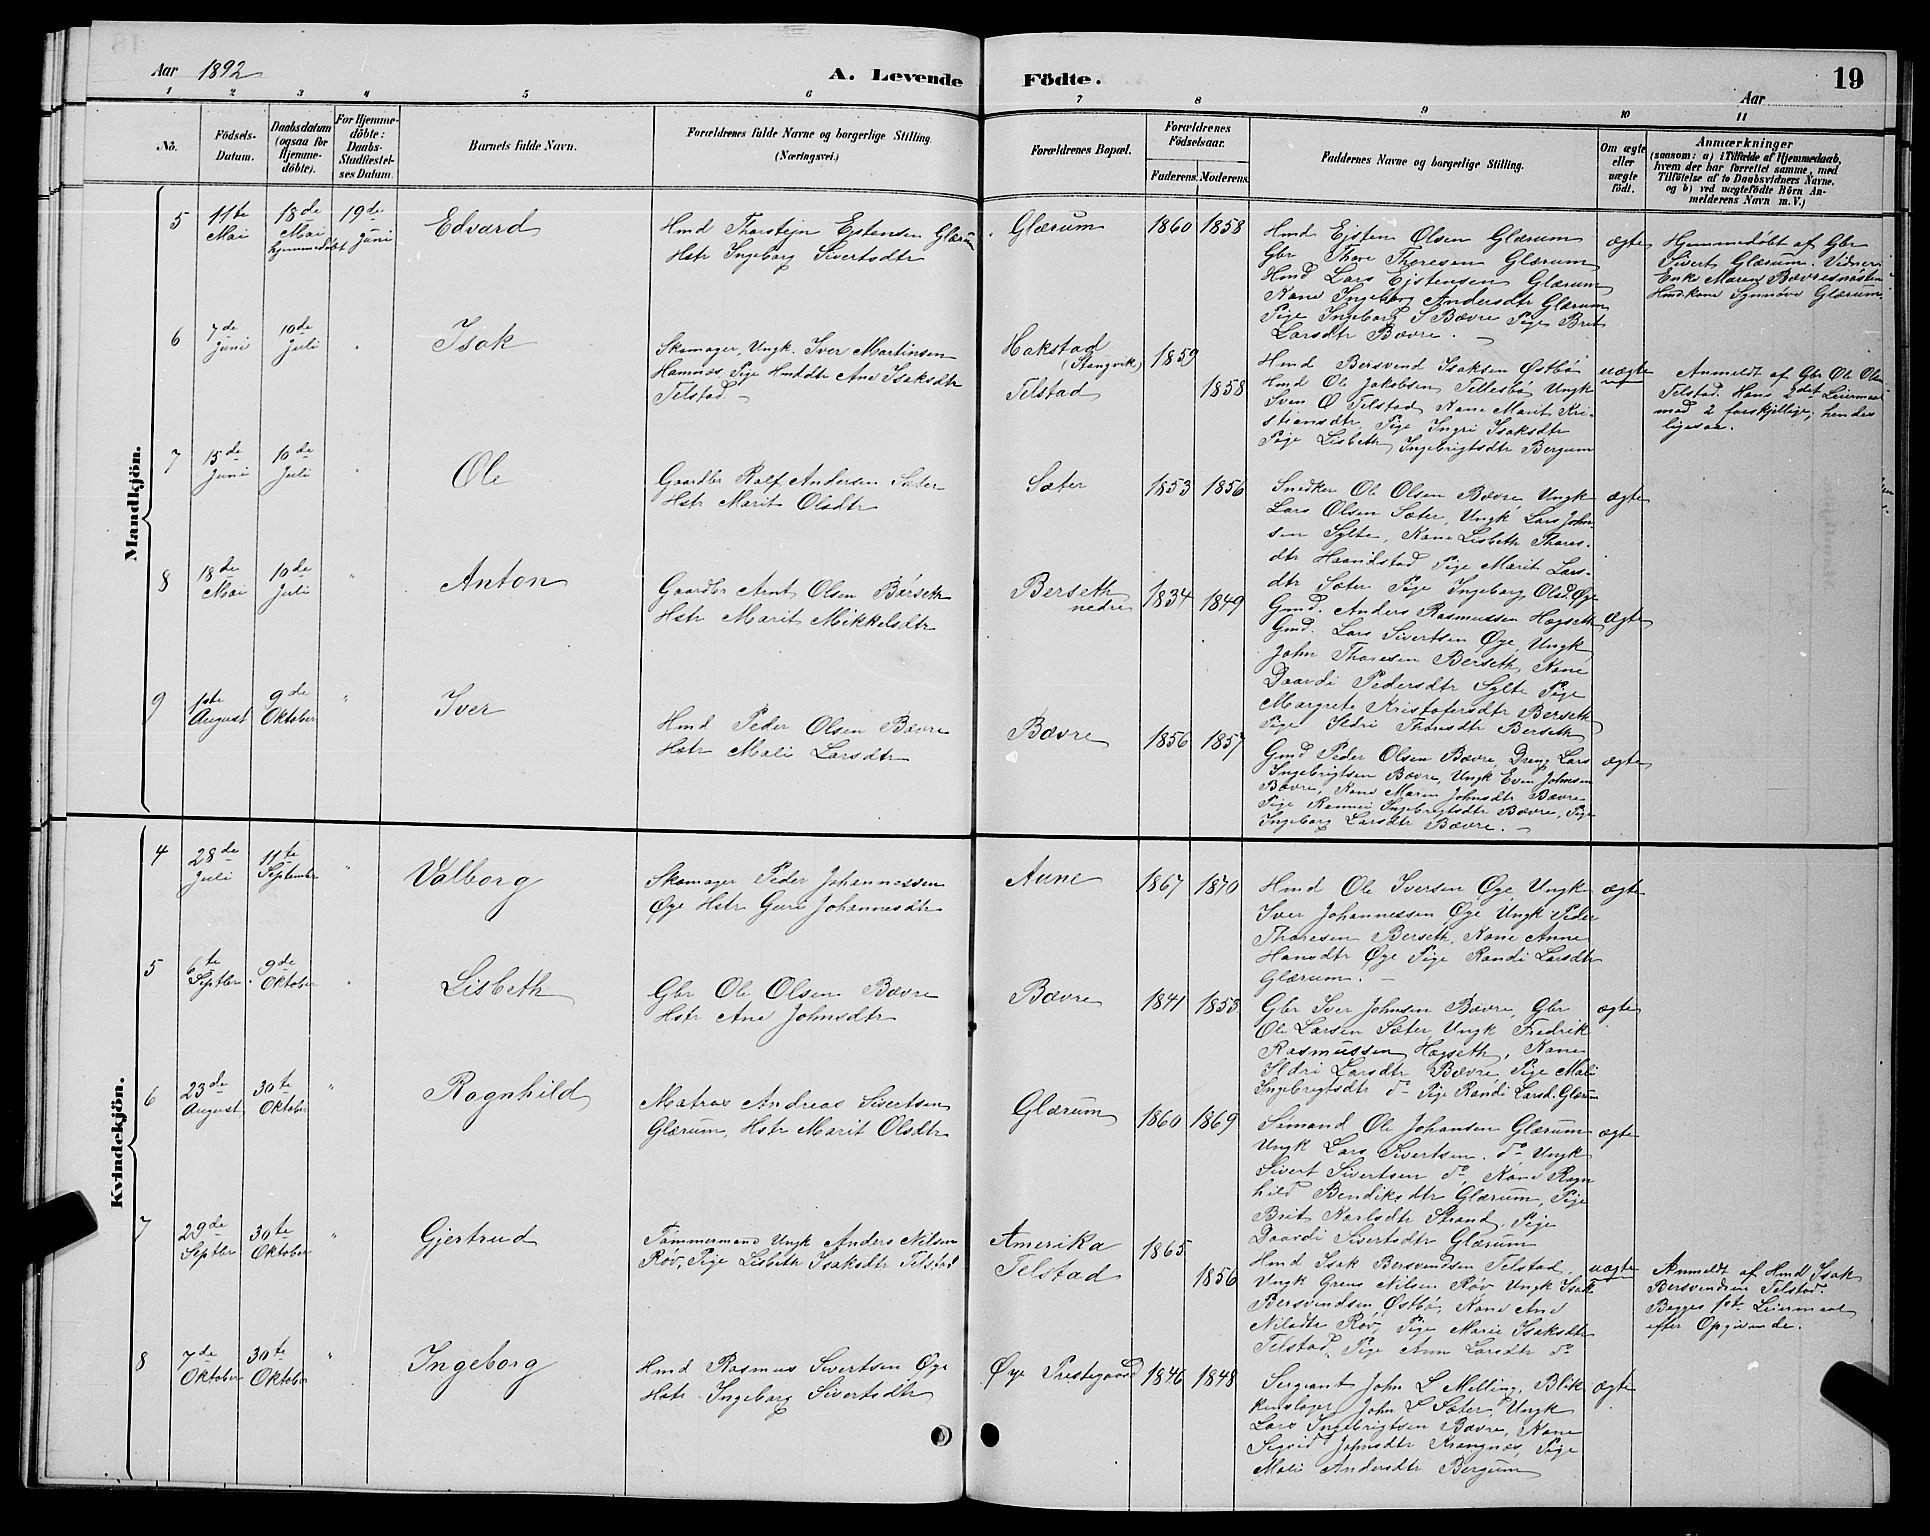 Aar 1892
A. Levende Födte.
19
Aar
1 2 3 4 5 6 7 8 9 10 11
No.
Födsels-
Datum.
Daabsdatum
(ogsaa for
Hjemme-
döbte).
For Hjemme-
döbte:
Daabs-
Stadfæstel-
ses Datum.
Barnets fulde Navn.
Forældrenes fulde Navne og borgerlige Stilling
(Næringsvei.)
Forældrenes Bopæl.
Forældrenes
Födselsaar.
Faderens. Moderens.
Faddernes Navne og borgerlige Stilling.
Om ægte
eller
uægte
født.
Anmærkninger
(saasom: a) i Tilfælde af Hjemmedaab,
hvem der har forrettet samme, med
Tilföielse af to Daabsvidners Navne,
og b) ved uægtefödte Börn An-
melderens Navn m. V.)
Mandkjön.
5
11te
Mai
18de
Mai
hjemmedøbt
19de
Juni
Edvard
Hmd Thorstejn Ejstensen Glærum
Hstr Ingeborg Sivertsdtr
Glærum
1860 1858
Hmd Ejsten Olsen Glærum
Gbr Thore Thoresen Glærum
Hmd Lars Ejstensen Glærum
Kone Ingeborg Andersdtr Glærum
Pige Ingeborg S Bævre Pige Brit
Larsdtr Bævre.
ægte
Hjemmedøbt af Gbr
Sivert Glærum. Vidner
Enke Maren Bævresnøsten
Hmdkone Synnøve Glærum.
6
7de
Juni
10de
Juli
"
Isak
Skomager, Ungk. Iver Martinsen
Hamnes, Pige Hmddtr Ane Isaksdtr
Telstad.
Hakstad
(Stangvik)
Telstad
1859
1858
Hmd Bersvend Isaksen Østbø
Hmd Ole Jakobsen Tellesbø Ungk
Sven O Telstad, Kone Marit Kri-
stiansdtr, Pige Ingri Isaksdtr
Pige Lisbeth Ingebrigtsdtr Bergum
uægte
Anmeldt af Gbr Ole Olsen
Telstad. Hans 2det Leiermaal
med 2 forskjellige, hendes
ligesaa.
7
15de
Juni
10de
Juli
"
Ole
Gaardbr Rolf Andersen Sæter
Hstr Marit Olsdtr
Sæter
1853 1856
Snedker Ole Olsen Bævre Ungk
Lars Olsen Sæter, Ungk Lars John-
sen Sylte, Kone Lisbeth Thores-
dtr Haandstad Pige Marit Lars-
dtr Sæter Pige Ingeborg Olsd Øye
ægte
8
18de
Mai
10de
Juli
"
Anton
Gaardbr Arnt Olsen Børseth
Hstr Marit Mikkelsdtr
Berseth
nedre
1834 1849
Gmd. Anders Rasmussen Høgseth
Gmd. Lars Sivertsen Øye, Ungk
John Thoresen Berseth, Kone
Daardi Pedersdtr Sylte Pige
Margrete Kristofersdtr Berseth
Pige Ildri Thorsdtr Berseth
ægte
9
1ste
August
9de
Oktober
"
Iver
Hmd Peder Olsen Bævre
Hstr Mali Larsdtr
Bævre
1856 1857
Gmd Peder Olsen Bævre, Dreng Lars
Ingebrigtsen Bævre, Ungk Even Johnsen
Bævre, Kone Maren Johnsdtr Bævre
Pige Rannei Ingebrigtsdtr Bævre, Pige
Ingeborg Larsdtr Bævre.
ægte
Kvindekjön.
4
28de
Juli
11te
September
"
Valborg
Skomager Peder Johannessen
Øye Hstr Guri Johannesdtr
Aune
1867 1870
Hmd Ole Iversen Øye Ungk
Iver Johannessen Øye Ungk Peder
Thoresen Berseth, Kone Anne
Hansdtr Øye Pige Randi Larsdtr
Glærum.
ægte
5
6te
Septber
9de
Oktober
"
Lisbeth
Gbr Ole Olsen Bævre
Hstr Ane Johnsdtr
Bævre
1841 1853
Gbr Iver Johnsen Bævre, Gbr
Ole Larsen Sæter, Ungk Fredrik
Rasmussen Høgseth, Kone
Ildri Larsdtr Bævre, Pige Mali
Ingebrigtsdtr do Pige Randi Larsd. Glærum
ægte
6
23de
August
30te
Oktober
"
Ragnhild
Matros Andreas Sivertsen
Glærum, Hstr Marit Olsdtr
Glærum
1860 1869
Sømand Ole Johansen Glærum
Ungk Lars Sivertsen. do Ungk
Sivert Sivertsen do, Kone Ragn
hild Bendiksdtr Glærum, Pige
Brit Karlsdtr Strand, Pige
Daardi Sivertsdtr Glærum
ægte
7
29de
Septber
30te
Oktober
"
Gjertrud
Tømmermand Ungk Anders Nilsen
Røv, Pige Lisbeth Isaksdtr Telstad
Amerika
Telstad
1865
1856
Hmd Isak Bersvendsen Telstad,
Ungk Grens Nilsen Røv Ungk Isak
Bersvendsen Østbø, Kone Ane
Nilsdtr Røv, Pige Marie Isaksdtr
Telstad, Pige Ann Larsdtr do
uægte
Anmeldt af Hmd Isak
Bersvendsen Telstad.
Begges 1ste Leiermaal
efter Opgivende.
8
7de
Oktober
30te
Oktober
"
Ingeborg
Hmd Rasmus Sivertsen Øye
Hstr Ingeborg Sivertsdtr
Øye Prestegaard
1846 1848
Sergeant John L Melling, Blik
kenslager John L Sæter, Ungk
Lars Ingebrigtsen Bævre, Kone
Sigrid Johnsdtr Krangnes, Pige
Mali Andersdtr Bergum
ægte